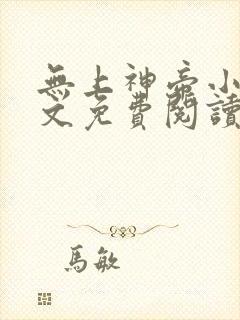 無上神帝小
文免費閱讀
馬敏